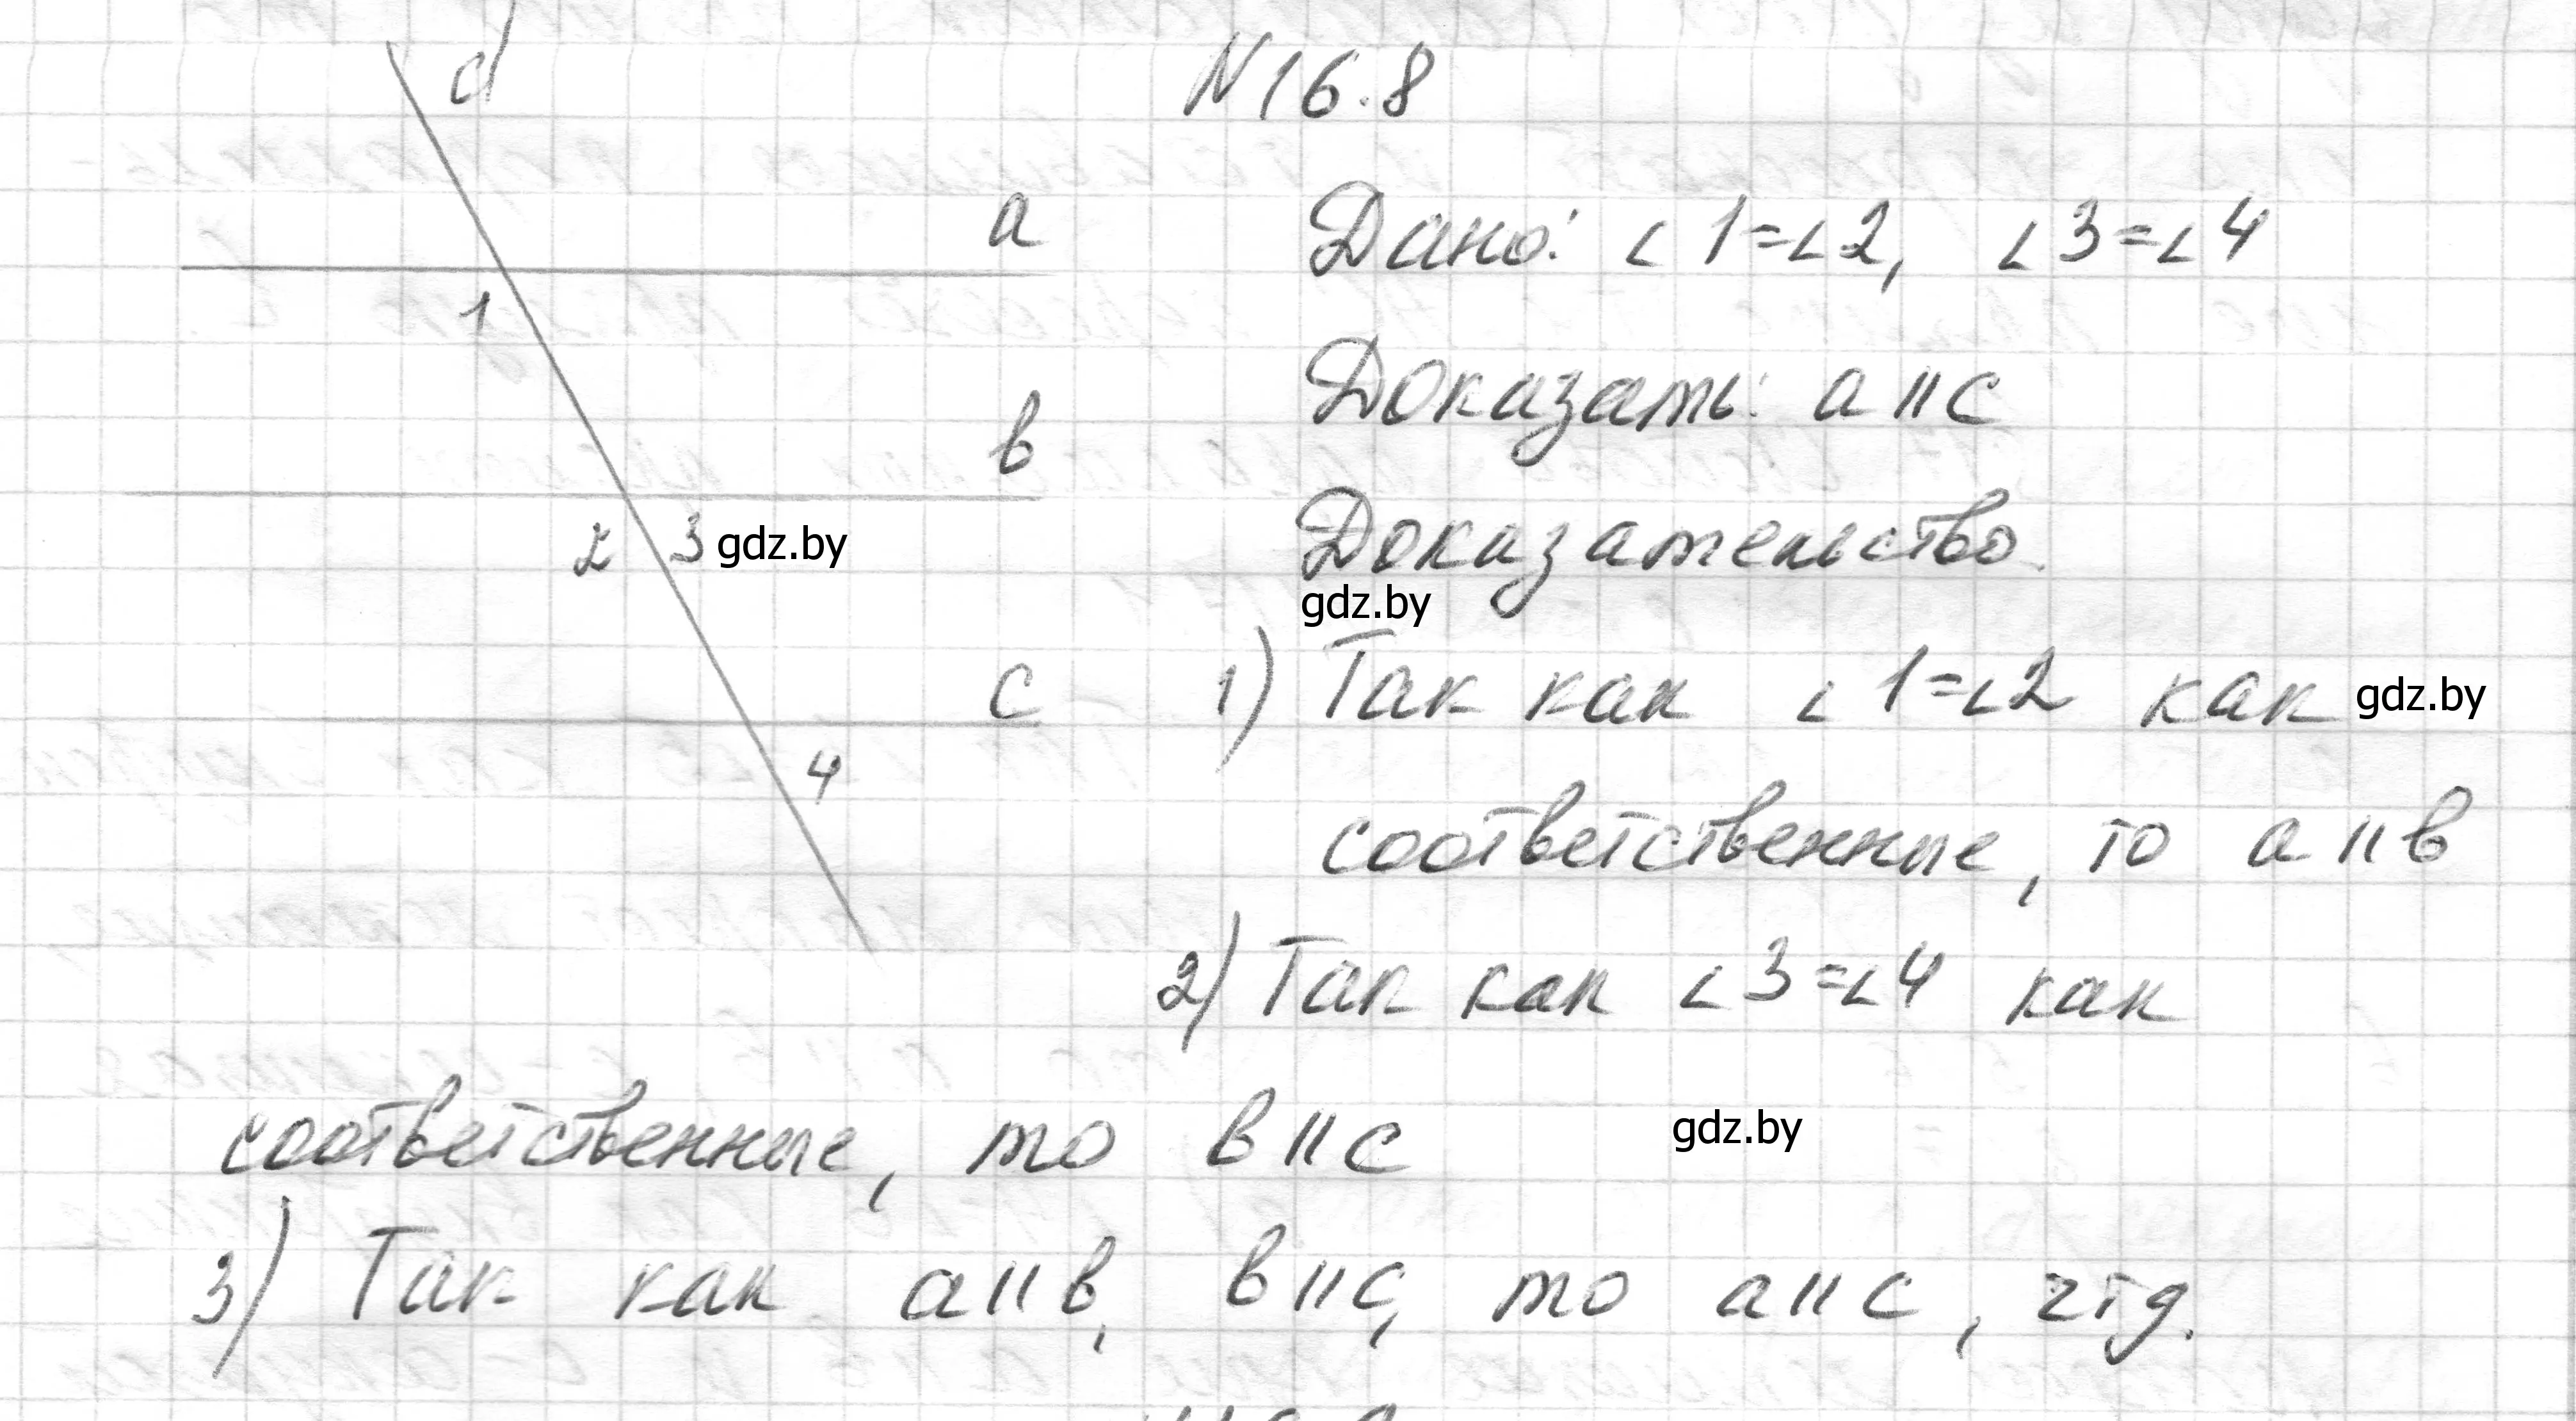 d
N16.8
a
Дано: ∠1=∠2, ∠3=∠4
1
Доказать: a||c
в
Доказательство.
2 3 gdz.by
gdz.by
c
1) Так как ∠1=∠2 как gdz.by
4
соответственные, то a||в
2) Так как ∠3=∠4 как
соответственные, то в||c
gdz.by
3) Так как a||в, в||c, то a||c, чтд.